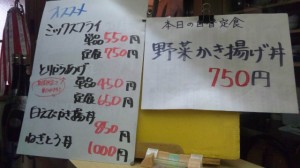 オススメ
ミックスフライ
単品 550円
定食 750円
とりからあげ
単品 450円
定食 650円
かき揚丼
850円
ねぎとろ丼
1000円
本日の日替定食
野菜かき揚げ丼
750円